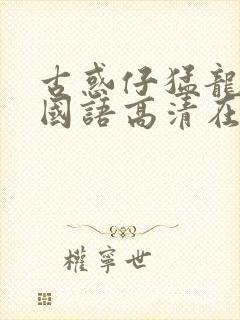 古惑仔猛龍
國語高清在
權寧世